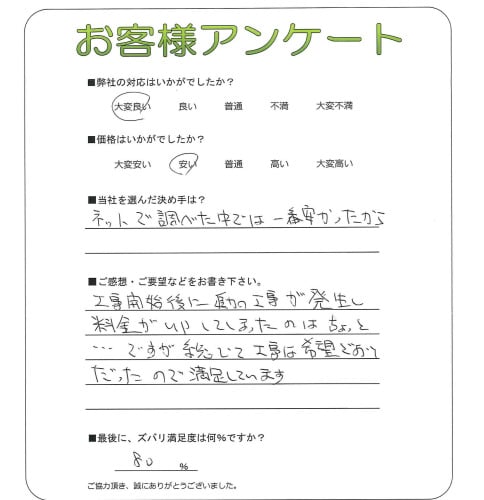 お客様アンケート
■弊社の対応はいかがでしたか？
大変良い 良い 普通 不満 大変不満
■価格はいかがでしたか？
大変安い 安い 普通 高い 大変高い
■当社を選んだ決め手は？
ネットで調べた中では一番安かったから
■ご感想・ご要望などをお書き下さい。
工事開始後に の工事が発生し
料金がupしてしまったのはちょっと
…ですが総じて工事は希望どおり
だったので満足しています
■最後に、ズバリ満足度は何％ですか？
80 ％
ご協力頂き、誠にありがとうございました。